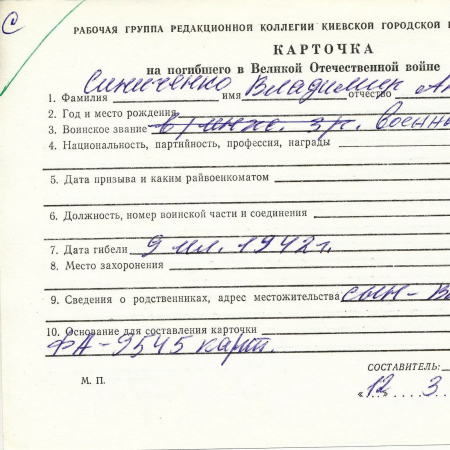 С
РАБОЧАЯ ГРУППА РЕДАКЦИОННОЙ КОЛЛЕГИИ КИЕВСКОЙ ГОРОДСКОЙ
КАРТОЧКА
на погибшего в Великой Отечественной войне
1. Фамилия Синиченко имя Владимир отчество
2. Год и место рождения
3. Воинское звание в/инж. 3 р. военн
4. Национальность, партийность, профессия, награды
5. Дата призыва и каким райвоенкоматом
6. Должность, номер воинской части и соединения
7. Дата гибели 9 ил. 1942 г.
8. Место захоронения
9. Сведения о родственниках, адрес местожительства сын -
10. Основание для составления карточки
ФА-9545 карт.
СОСТАВИТЕЛЬ:
М. П.
«12» 3